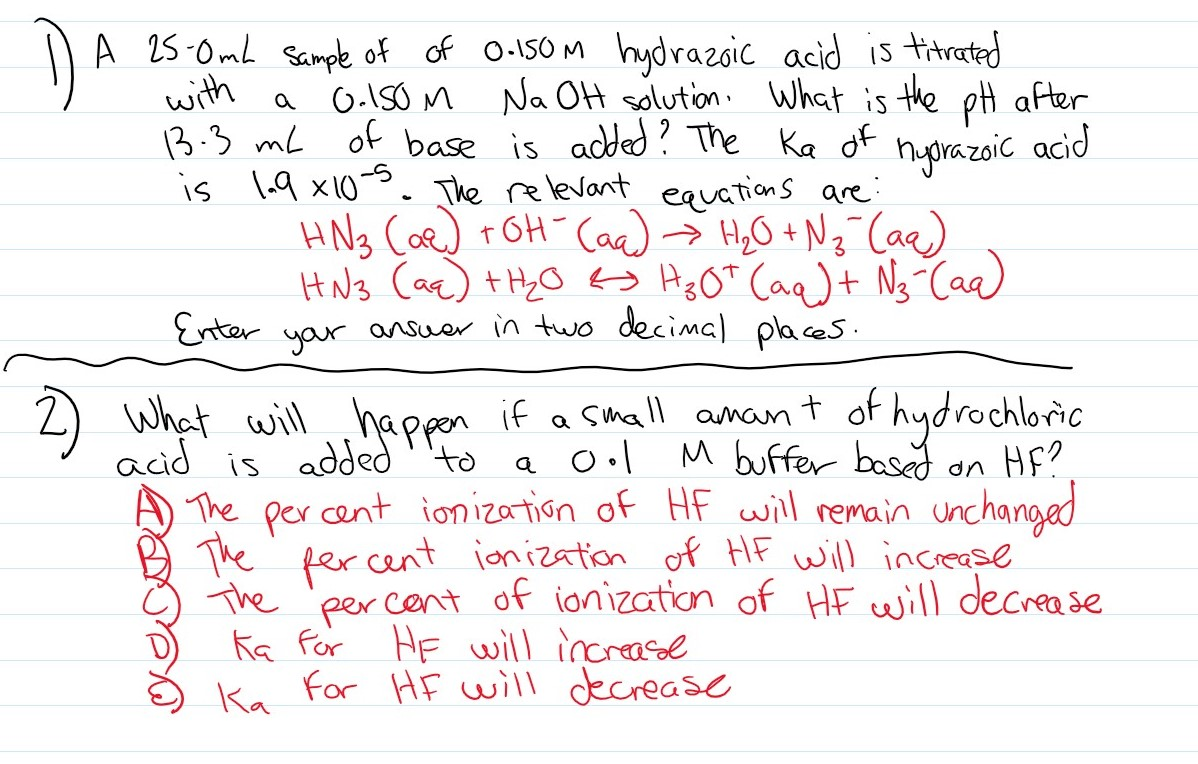 1) A 25.0mL sample of of 0.150M hydrazoic acid is titrated
with a 0.150M NaOH solution. What is the pH after
13.3 mL of base is added? The Ka of hyprazoic acid
is 1.9 x10⁻⁵. The relevant equations are:
HN₃ (aq) + OH⁻ (aq) → H₂O + N₃⁻ (aq)
HN₃ (aq) + H₂O ↔ H₃O⁺ (aq) + N₃⁻ (aq)
Enter your answer in two decimal places.
2) What will happen if a small amant of hydrochloric
acid is added to a 0.1 M buffer based on HF?
A) The percent ionization of HF will remain unchanged
B) The percent ionization of HF will increase
C) The percent of ionization of HF will decrease
D) Ka for HF will increase
E) Ka for HF will decrease